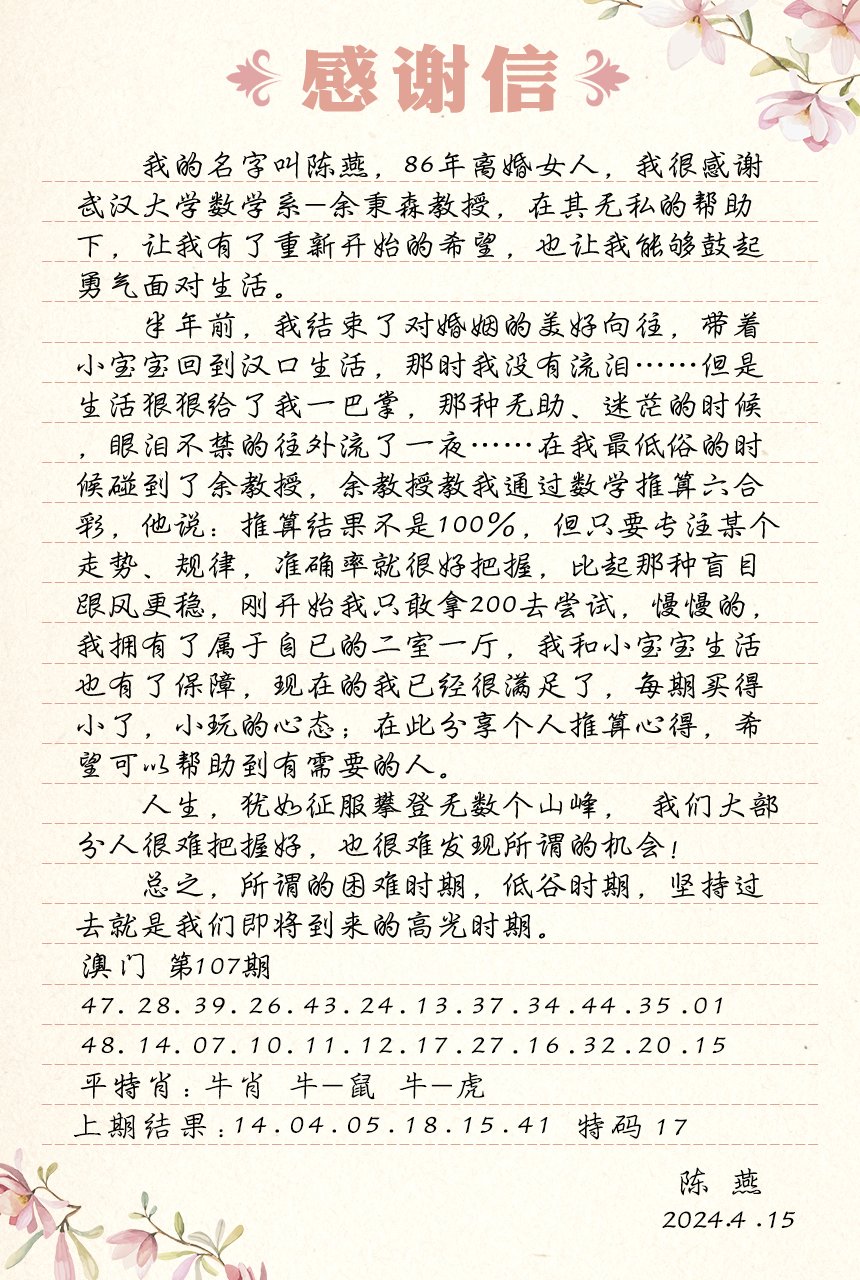 感谢信
我的名字叫陈燕，86年离婚女人，我很感谢
武汉大学数学系—余秉森教授，在其无私的帮助
下，让我有了重新开始的希望，也让我能够鼓起
勇气面对生活。
半年前，我结束了对婚姻的美好向往，带着
小宝宝回到汉口生活，那时我没有流泪……但是
生活狠狠给了我一巴掌，那种无助、迷茫的时候
，眼泪不禁的往外流了一夜……在我最低俗的时
候碰到了余教授，余教授教我通过数学推算六合
彩，他说：推算结果不是100%，但只要专注某个
走势、规律，准确率就很好把握，比起那种盲目
跟风更稳，刚开始我只敢拿200去尝试，慢慢的，
我拥有了属于自已的二室一厅，我和小宝宝生活
也有了保障，现在的我已经很满足了，每期买得
小了，小玩的心态；在此分享个人推算心得，希
望可以帮助到有需要的人。
人生，犹如征服攀登无数个山峰， 我们大部
分人很难把握好，也很难发现所谓的机会！
总之，所谓的困难时期，低谷时期，坚持过
去就是我们即将到来的高光时期。
澳门 第107期
47.28.39.26.43.24.13.37.34.44.35.01
48.14.07.10.11.12.17.27.16.32.20.15
平特肖：牛肖 牛—鼠 牛—虎
上期结果：14.04.05.18.15.41 特码 17
陈 燕
2024.4.15